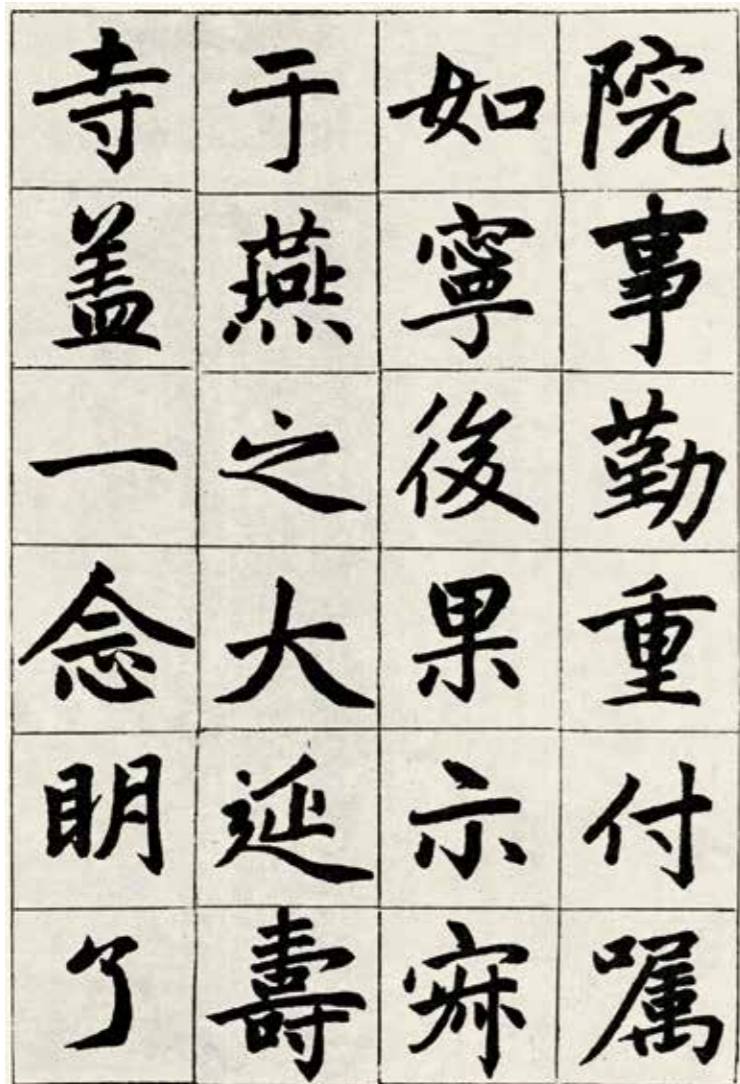 院事勤重付嘱
如寧後果示寂
于燕之大延壽
寺盖一念明了